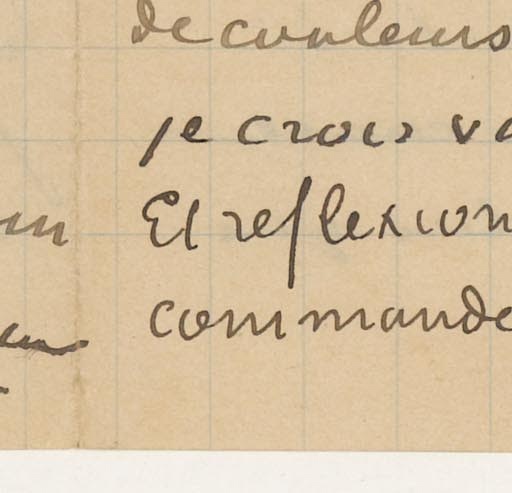 de couleurs
je crois va
Et reflexion
commande